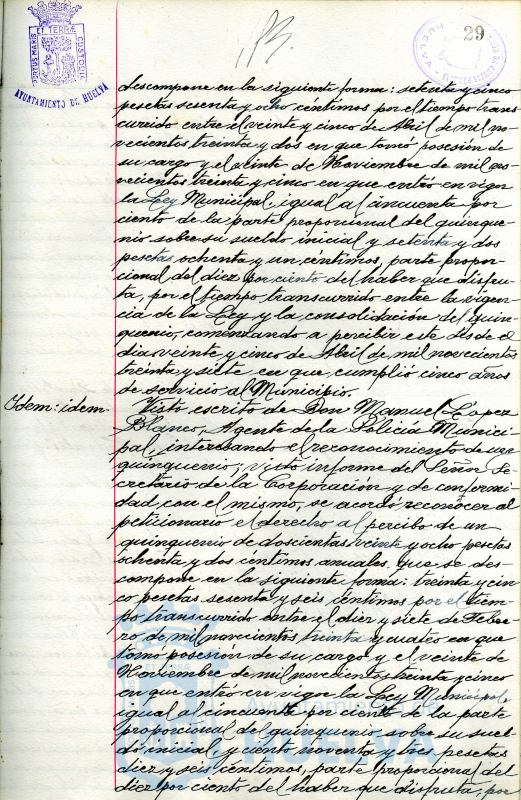 PORTUS MARIS ET TERRÆ CUSTODIA
AYUNTAMIENTO DE HUELVA
HUELVA
29
descompone en la siguiente forma: setenta y cinco
pesetas sesenta y ocho céntimos por el tiempo trans
currido entre el veinte y cinco de Abril de mil no
vecientos treinta y dos en que tomó posesión de
su cargo y el veinte de Noviembre de mil no
vecientos treinta y cinco en que entró en vigor
la Ley Municipal, igual al cincuenta por
ciento de la parte proporcional del quinque-
nio sobre su sueldo inicial y setenta y dos
pesetas ochenta y un céntimos, parte propor-
cional del diez por ciento del haber que disfru-
ta, por el tiempo transcurrido entre la vigen-
cia de la Ley y la consolidación del quin-
quenio, comenzando a percibir este desde el
dia veinte y cinco de Abril de mil novecientos
treinta y siete en que cumplió cinco años
de servicio al Municipio.
Idem: idem.
Visto escrito de Don Manuel López
Blanco, Agente de la Policía Munici-
pal, interesando el reconocimiento de un
quinquenio; visto informe del Señor Se-
cretario de la Corporación y de conformi-
dad con el mismo, se acordó reconocer al
peticionario el derecho al percibo de un
quinquenio de doscientas veinte y ocho pesetas
ochenta y dos céntimos anuales, que se des-
compone en la siguiente forma: treinta y cin-
co pesetas sesenta y seis céntimos por el tiem-
po transcurrido entre el diez y siete de Febre-
ro de mil novecientos treinta y cuatro en que
tomó posesión de su cargo y el veinte de
Noviembre de mil novecientos treinta y cinco
en que entró en vigor la Ley Municipal,
igual al cincuenta por ciento de la parte
proporcional del quinquenio sobre su suel-
do inicial y ciento noventa y tres pesetas
diez y seis céntimos, parte proporcional del
diez por ciento del haber que disfruta, por
Ayuntamiento de
HUELVA